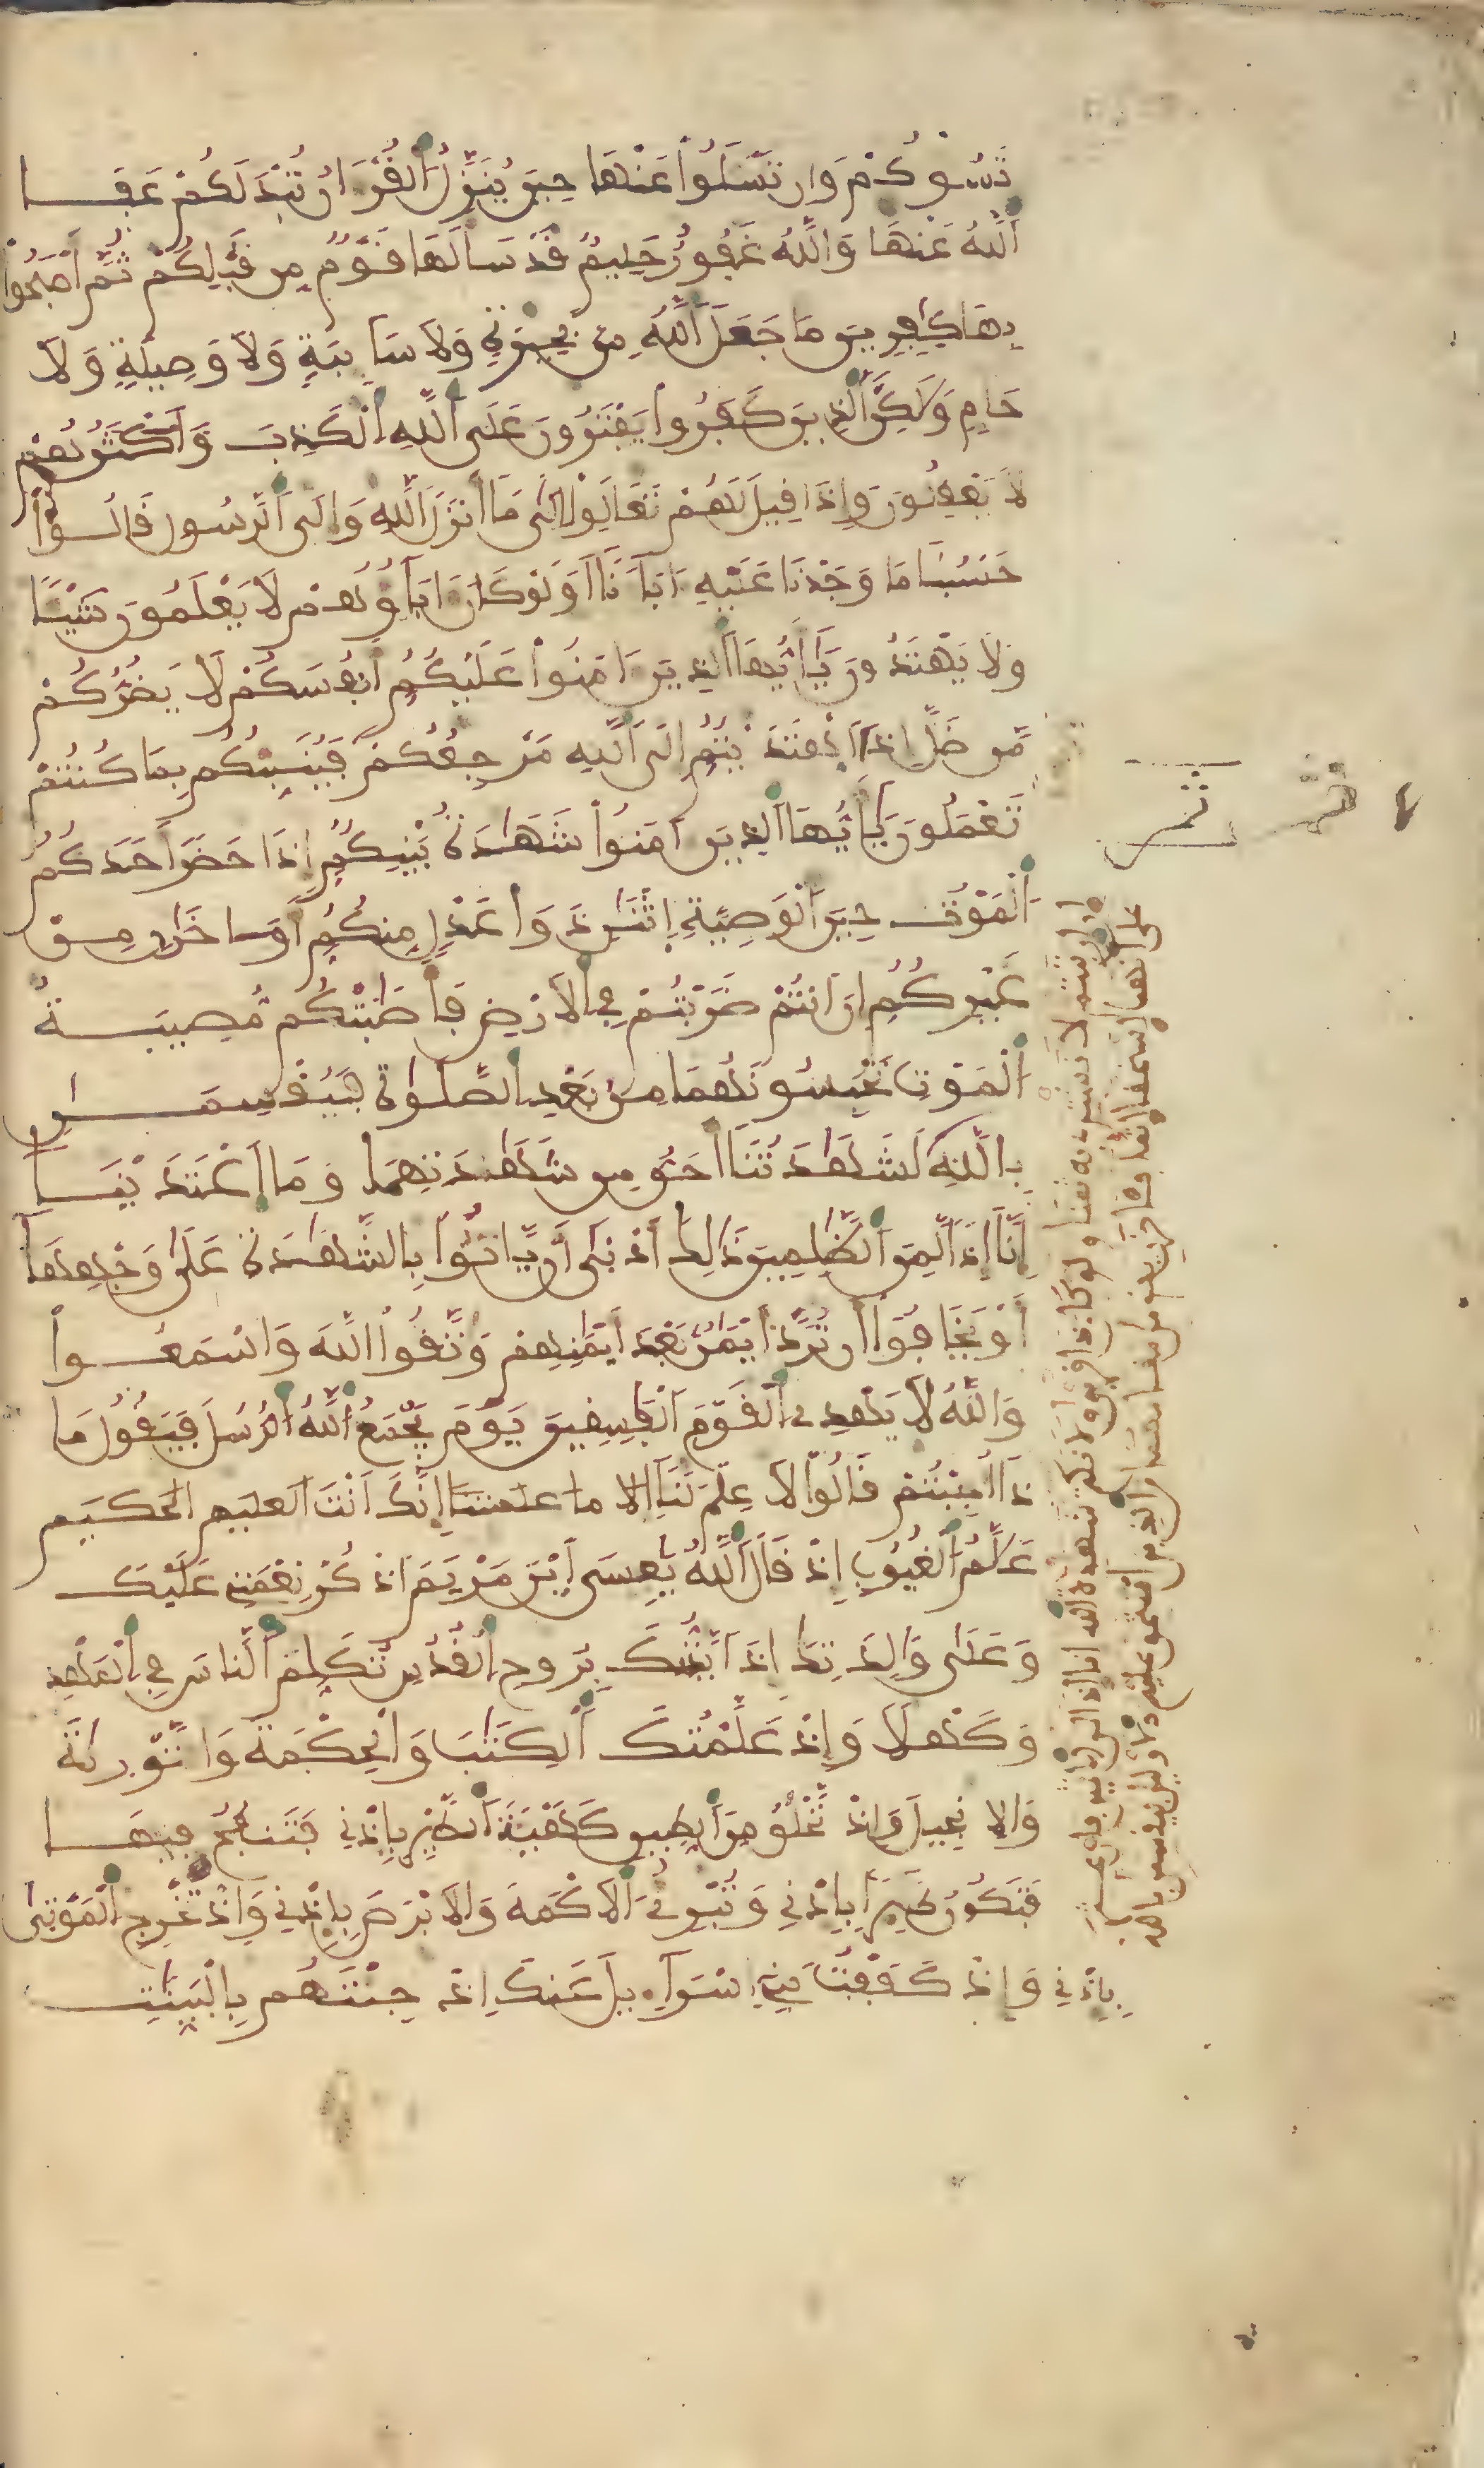 تَسُؤْكُمْ وَإِن تَسْـَٔلُواْ عَنْهَا حِينَ يُنَزَّلُ اَ۬لْقُرْءَانُ تُبْدَ لَكُمْ عَفَا
اَ۬للَّهُ عَنْهَا وَاللَّهُ غَفُورٌ حَلِيمٌ قَدْ سَأَلَهَا قَوْمٌ مِّن قَبْلِكُمْ ثُمَّ أَصْبَحُواْ
بِهَا كَٰفِرِينَ مَا جَعَلَ اَ۬للَّهُ مِنۢ بَحِيرَةٍ وَلَا سَآئِبَةٍ وَلَا وَصِيلَةٍ وَلَا
حَامٍ وَلَٰكِنَّ اَ۬لذِينَ كَفَرُواْ يَفْتَرُونَ عَلَى اَ۬للَّهِ اِ۬لْكَذِبَ وَأَكْثَرُهُمْ
لَا يَعْقِلُونَ وَإِذَا قِيلَ لَهُمْ تَعَالَوِاْ اِلَىٰ مَا أَنزَلَ اَ۬للَّهُ وَإِلَى اَ۬لرَّسُولِ قَالُواْ
حَسْبُنَا مَا وَجَدْنَا عَلَيْهِ ءَابَآءَنَا أَوَلَوْ كَانَ ءَابَآؤُهُمْ لَا يَعْلَمُونَ شَيْـًٔا
وَلَا يَهْتَدُونَ يَٰأَيُّهَا اَ۬لذِينَ ءَامَنُواْ عَلَيْكُمُ أَنفُسَكُمْ لَا يَضُرُّكُم
مَّن ضَلَّ إِذَا اَ۪هْتَدَيْتُمُ إِلَى اَ۬للَّهِ مَرْجِعُكُمْ فَيُنَبِّئُكُم بِمَا كُنتُمْ
تَعْمَلُونَ يَٰأَيُّهَا اَ۬لذِينَ ءَامَنُواْ شَهَٰدَةُ بَيْنِكُمُ إِذَا حَضَرَ أَحَدَكُمُ
اَ۬لْمَوْتُ حِينَ اَ۬لْوَصِيَّةِ اِ۪ثْنَٰنِ ذَوَا عَدْلٍ مِّنكُمُ أَوَ اخَرَٰنِ مِنْ
غَيْرِكُمُ إِنَ اَنتُمْ ضَرَبْتُمْ فِى اِ۬لَارْضِ فَأَصَٰبَتْكُم مُّصِيبَةُ
اُ۬لْمَوْتِ تَحْبِسُونَهُمَا مِنۢ بَعْدِ اِ۬لصَّلَوٰةِ فَيُقْسِمَٰنِ
بِاللَّهِ لَشَهَٰدَتُنَا أَحَقُّ مِن شَهَٰدَتِهِمَا وَمَا اَ۪عْتَدَيْنَا
إِنَّا إِذاً لَّمِنَ اَ۬لظَّٰلِمِينَ ذَٰلِكَ أَدْنَىٰ أَنْ يَّاتُواْ بِالشَّهَٰدَةِ عَلَىٰ وَجْهِهَا
أَوْ يَخَافُواْ أَن تُرَدَّ أَيْمَٰنٌۢ بَعْدَ أَيْمَٰنِهِمْ وَاتَّقُواْ اُ۬للَّهَ وَاسْمَعُواْ
وَاللَّهُ لَا يَهْدِى اِ۬لْقَوْمَ اَ۬لْفَٰسِقِينَ يَوْمَ يَجْمَعُ اُ۬للَّهُ اُ۬لرُّسُلَ فَيَقُولُ مَا
ذَا أُجِبْتُمْ قَالُواْ لَا عِلْمَ لَنَا إلا ما علمتنا إِنَّكَ أَنتَ العليم الحكيم
عَلَّٰمُ اُ۬لْغُيُوبِ إِذْ قَالَ اَ۬للَّهُ يَٰعِيسَى اَ۪بْنَ مَرْيَمَ اَ۟ذْكُرْ نِعْمَتِى عَلَيْكَ
وَعَلَىٰ وَٰلِدَتِكَ إِذَ اَيَّدتُّكَ بِرُوحِ اِ۬لْقُدُسِ تُكَلِّمُ اُ۬لنَّاسَ فِى اِ۬لْمَهْدِ
وَكَهْلًا وَإِذْ عَلَّمْتُكَ اَ۬لْكِتَٰبَ وَالْحِكْمَةَ وَالتَّوْرَىٰةَ
وَالِانجِيلَ وَإِذْ تَخْلُقُ مِنَ اَ۬لطِّينِ كَهَيْـَٔةِ اِ۬لطَّيْرِ بِإِذْنِى فَتَنفُخُ فِيهَا
فَتَكُونُ طَيْرًا بِإِذْنِى وَتُبْرِئُ اُ۬لَاكْمَهَ وَالَابْرَصَ بِإِذْنِى وَإِذْ تُخْرِجُ اُ۬لْمَوْتَىٰ
بِإِذْنِى وَإِذْ كَفَفْتُ بَنِى إِسْرَآءِيلَ عَنكَ إِذْ جِئْتَهُم بِالْبَيِّنَٰتِ
إن ارتبتم لا نشتري به ثمنا ولو كان ذا قربى ولا نكتم شهدة الله إنا إذا لمن الاثمين فإن عثر
على أنهما استحقا إثما فـٔاخرن يقومن مقامهما من الذين استحق عليهم الاولين فيقسمن بالله